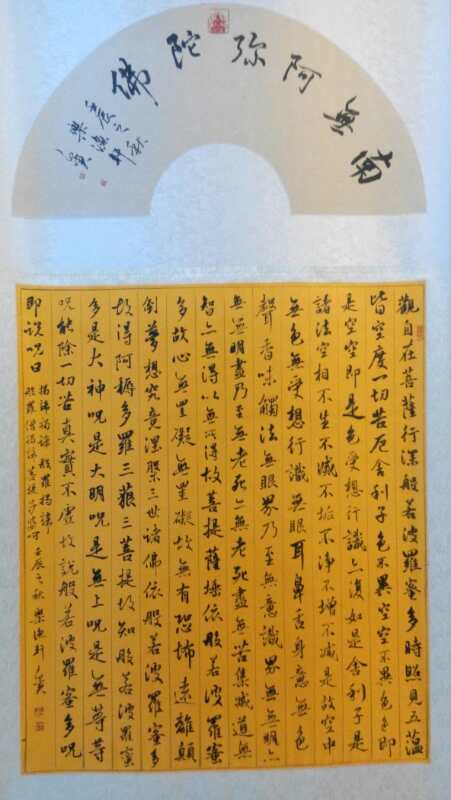 南無阿弥陀佛
壬辰之秋
樂漁軒
觀自在菩薩行深般若波羅蜜多時照見五蘊
皆空度一切苦厄舍利子色不異空空不異色色即
是空空即是色受想行識亦復如是舍利子是
諸法空相不生不滅不垢不淨不增不減是故空中
無色無受想行識無眼耳鼻舌身意無色
聲香味觸法無眼界乃至無意識界無無明亦
無無明盡乃至無老死亦無老死盡無苦集滅道無
智亦無得以無所得故菩提薩埵依般若波羅蜜
多故心無罣礙無罣礙故無有恐怖遠離顛
倒夢想究竟涅槃三世諸佛依般若波羅蜜多
故得阿耨多羅三藐三菩提故知般若波羅蜜
多是大神呪是大明呪是無上呪是無等等
呪能除一切苦真實不虛故說般若波羅蜜多呪
即說呪曰
揭諦揭諦 般羅揭諦
般羅僧揭諦菩提莎婆訶 壬辰之秋 樂漁軒